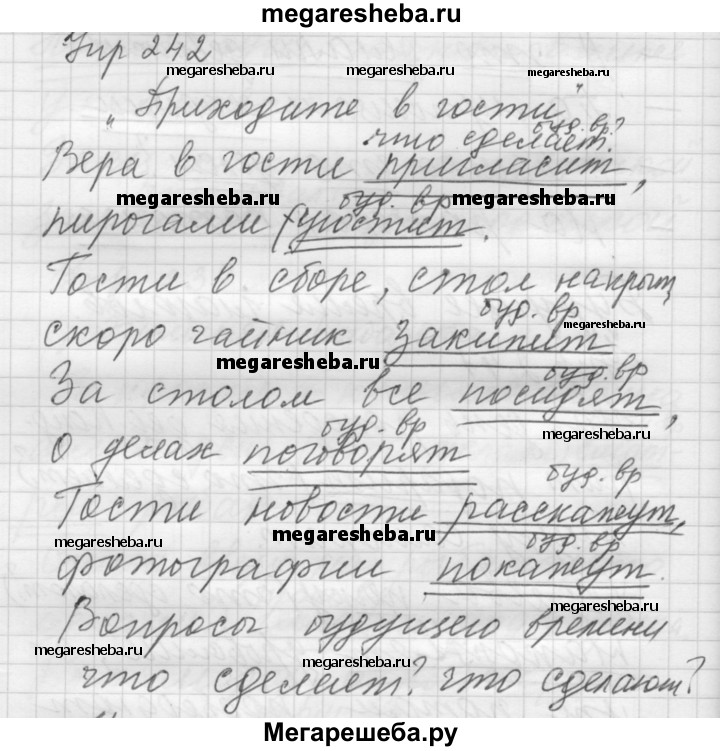 megaresheba.ru
Упр 242
megaresheba.ru megaresheba.ru megaresheba.ru
„Приходите в гости"
что сделает? буд. вр
Вера в гости пригласит,
megaresheba.ru буд. вр megaresheba.ru
пирогами угостит.
Гости в сборе, стол накрыт,
буд. вр megaresheba.ru
скоро чайник закипит
megaresheba.ru буд. вр
За столом все посидят,
буд. вр megaresheba.ru
о делах поговорят
буд. вр
Гости новости расскажут,
megaresheba.ru megaresheba.ru буд. вр
фотографии покажут.
megaresheba.ru
Вопросы будущего времени
megaresheba.ru megaresheba.ru
что сделает? что сделают?
Мегарешеба.ру